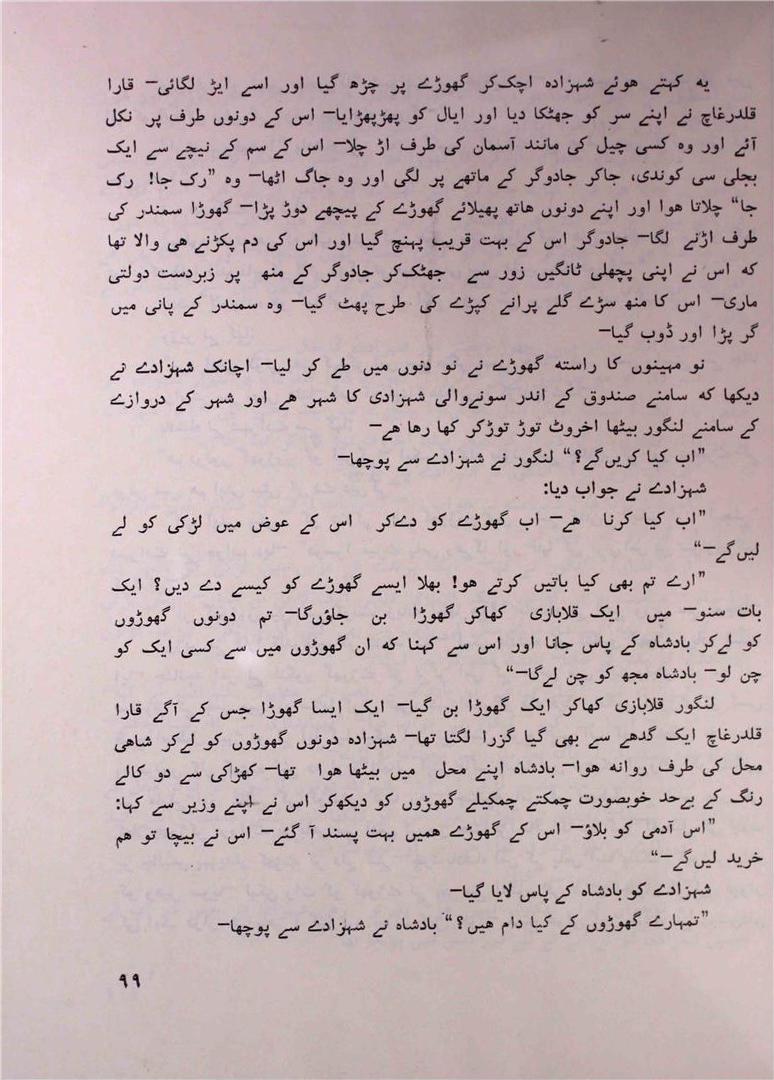 یہ کہتے ھوئے شہزادہ اچک‌کر گھوڑے پر چڑھ گیا اور اسے ایڑ لگائی— قارا
قلدرغاچ نے اپنے سر کو جھٹکا دیا اور ایال کو پھڑپھڑایا— اس کے دونوں طرف پر نکل
آئے اور وہ کسی چیل کی مانند آسمان کی طرف اڑ چلا— اس کے سم کے نیچے سے ایک
بجلی سی کوندی، جاکر جادوگر کے ماتھے پر لگی اور وہ جاگ اٹھا— وہ ”رک جا! رک
جا“ چلاتا ھوا اور اپنے دونوں ھاتھ پھیلائے گھوڑے کے پیچھے دوڑ پڑا— گھوڑا سمندر کی
طرف اڑنے لگا— جادوگر اس کے بہت قریب پہنچ گیا اور اس کی دم پکڑنے ھی والا تھا
کہ اس نے اپنی پچھلی ٹانگیں زور سے جھٹک‌کر جادوگر کے منھ پر زبردست دولتی
ماری— اس کا منھ سڑے گلے پرانے کپڑے کی طرح پھٹ گیا— وہ سمندر کے پانی میں
گر پڑا اور ڈوب گیا—
نو مہینوں کا راستہ گھوڑے نے نو دنوں میں طے کر لیا— اچانک شہزادے نے
دیکھا کہ سامنے صندوق کے اندر سونے‌والی شہزادی کا شہر ھے اور شہر کے دروازے
کے سامنے لنگور بیٹھا اخروٹ توڑ توڑکر کھا رھا ھے—
”اب کیا کریں‌گے؟“ لنگور نے شہزادے سے پوچھا—
شہزادے نے جواب دیا:
”اب کیا کرنا ھے— اب گھوڑے کو دے‌کر اس کے عوض میں لڑکی کو لے
لیں‌گے—“
”ارے تم بھی کیا باتیں کرتے ھو! بھلا ایسے گھوڑے کو کیسے دے دیں؟ ایک
بات سنو— میں ایک قلابازی کھاکر گھوڑا بن جاؤں‌گا— تم دونوں گھوڑوں
کو لے‌کر بادشاہ کے پاس جانا اور اس سے کہنا کہ ان گھوڑوں میں سے کسی ایک کو
چن لو— بادشاہ مجھ کو چن لے‌گا—“
لنگور قلابازی کھاکر ایک گھوڑا بن گیا— ایک ایسا گھوڑا جس کے آگے قارا
قلدرغاچ ایک گدھے سے بھی گیا گزرا لگتا تھا— شہزادہ دونوں گھوڑوں کو لے‌کر شاھی
محل کی طرف روانہ ھوا— بادشاہ اپنے محل میں بیٹھا ھوا تھا— کھڑکی سے دو کالے
رنگ کے بے‌حد خوبصورت چمکتے چمکیلے گھوڑوں کو دیکھ‌کر اس نے اپنے وزیر سے کہا:
”اس آدمی کو بلاؤ— اس کے گھوڑے ھمیں بہت پسند آ گئے— اس نے بیچا تو ھم
خرید لیں‌گے—“
شہزادے کو بادشاہ کے پاس لایا گیا—
”تمہارے گھوڑوں کے کیا دام ھیں؟“ بادشاہ نے شہزادے سے پوچھا—
۹۹